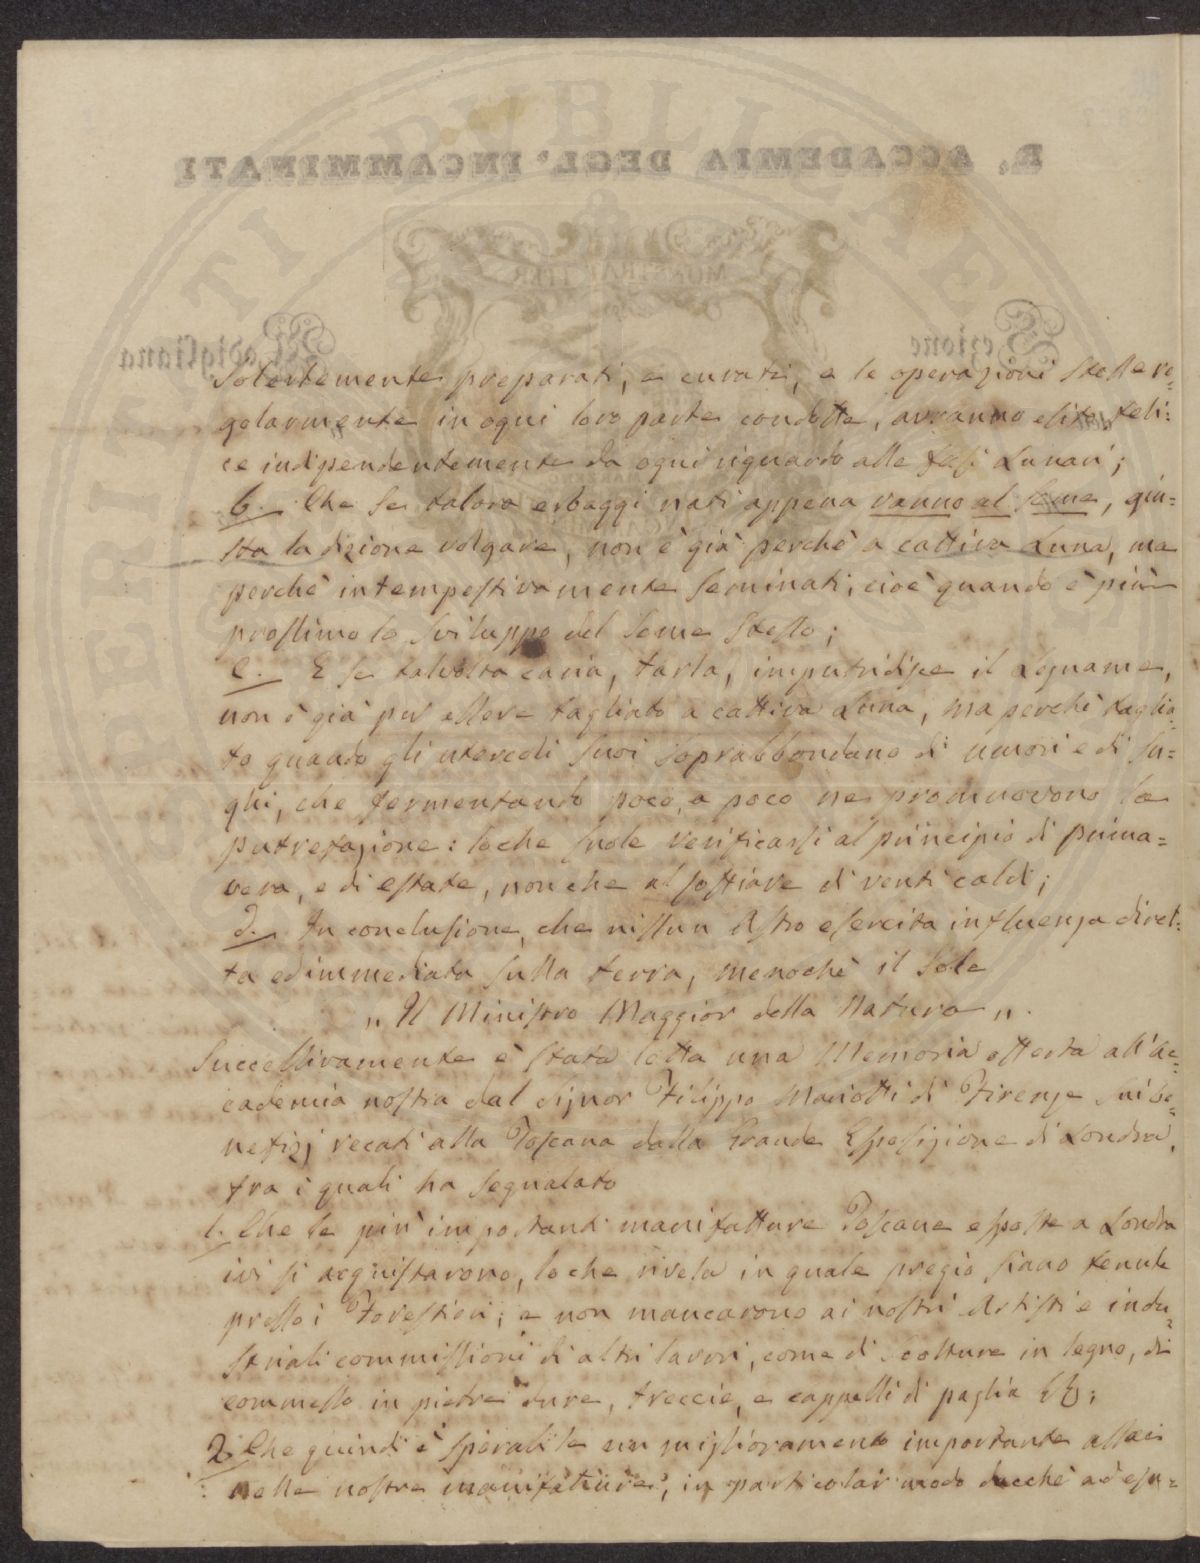 R. ACCADEMIA DEGL' INCAMMINATI
MONSTRAT ITER
Sezione Modigliana
Solertemente preparati, e curati, e le operazioni stesse re=
golarmente in ogni loro parte condotte, avranno esito feli=
ce indipendentemente da ogni riguardo alle fasi Lunari;
b. Che se talora erbaggi nati appena vanno al seme, giu=
sta la dizione volgare, non è già perchè a cattiva Luna, ma
perchè intempestivamente seminati; cioè quando è più
prossimo lo sviluppo del seme stesso;
c. E se talvolta caria, tarla, imputridisce il Legname,
non è già per essere tagliato a cattiva Luna, ma perchè taglia=
to quando gli utercoli suoi soprabbondano di umori e di su=
ghi, che fermentando poco, a poco ne promuovono la
putrefazione: loche suole verificarsi al principio di prima=
vera, e di estate, non che al soffiare di venti caldi;
d. In conclusione, che nissun Astro esercita influenza diret=
ta ed immediata sulla terra, menochè il Sole
„ Il Ministro Maggior della Natura „.
Successivamente è stata letta una Memoria offerta all'Ac=
cademia nostra dal Signor Filippo Mariotti di Firenze sui be=
nefizj recati alla Toscana dalla Grande Esposizione di Londra,
fra i quali ha segnalato
1. Che le più importanti manifatture Toscane esposte a Londra
ivi si acquistarono, loche rivela in quale pregio siano tenute
presso i Forestieri; e non mancarono ai nostri Artisti e indu=
striali commissioni di altri lavori, come di Scolture in legno, di
commesso in pietre dure, treccie, e cappelli di paglia;
2. Che quindi è sperabile un miglioramento importante assai
nelle nostre manifatture, in particolar modo dacchè ad esu=